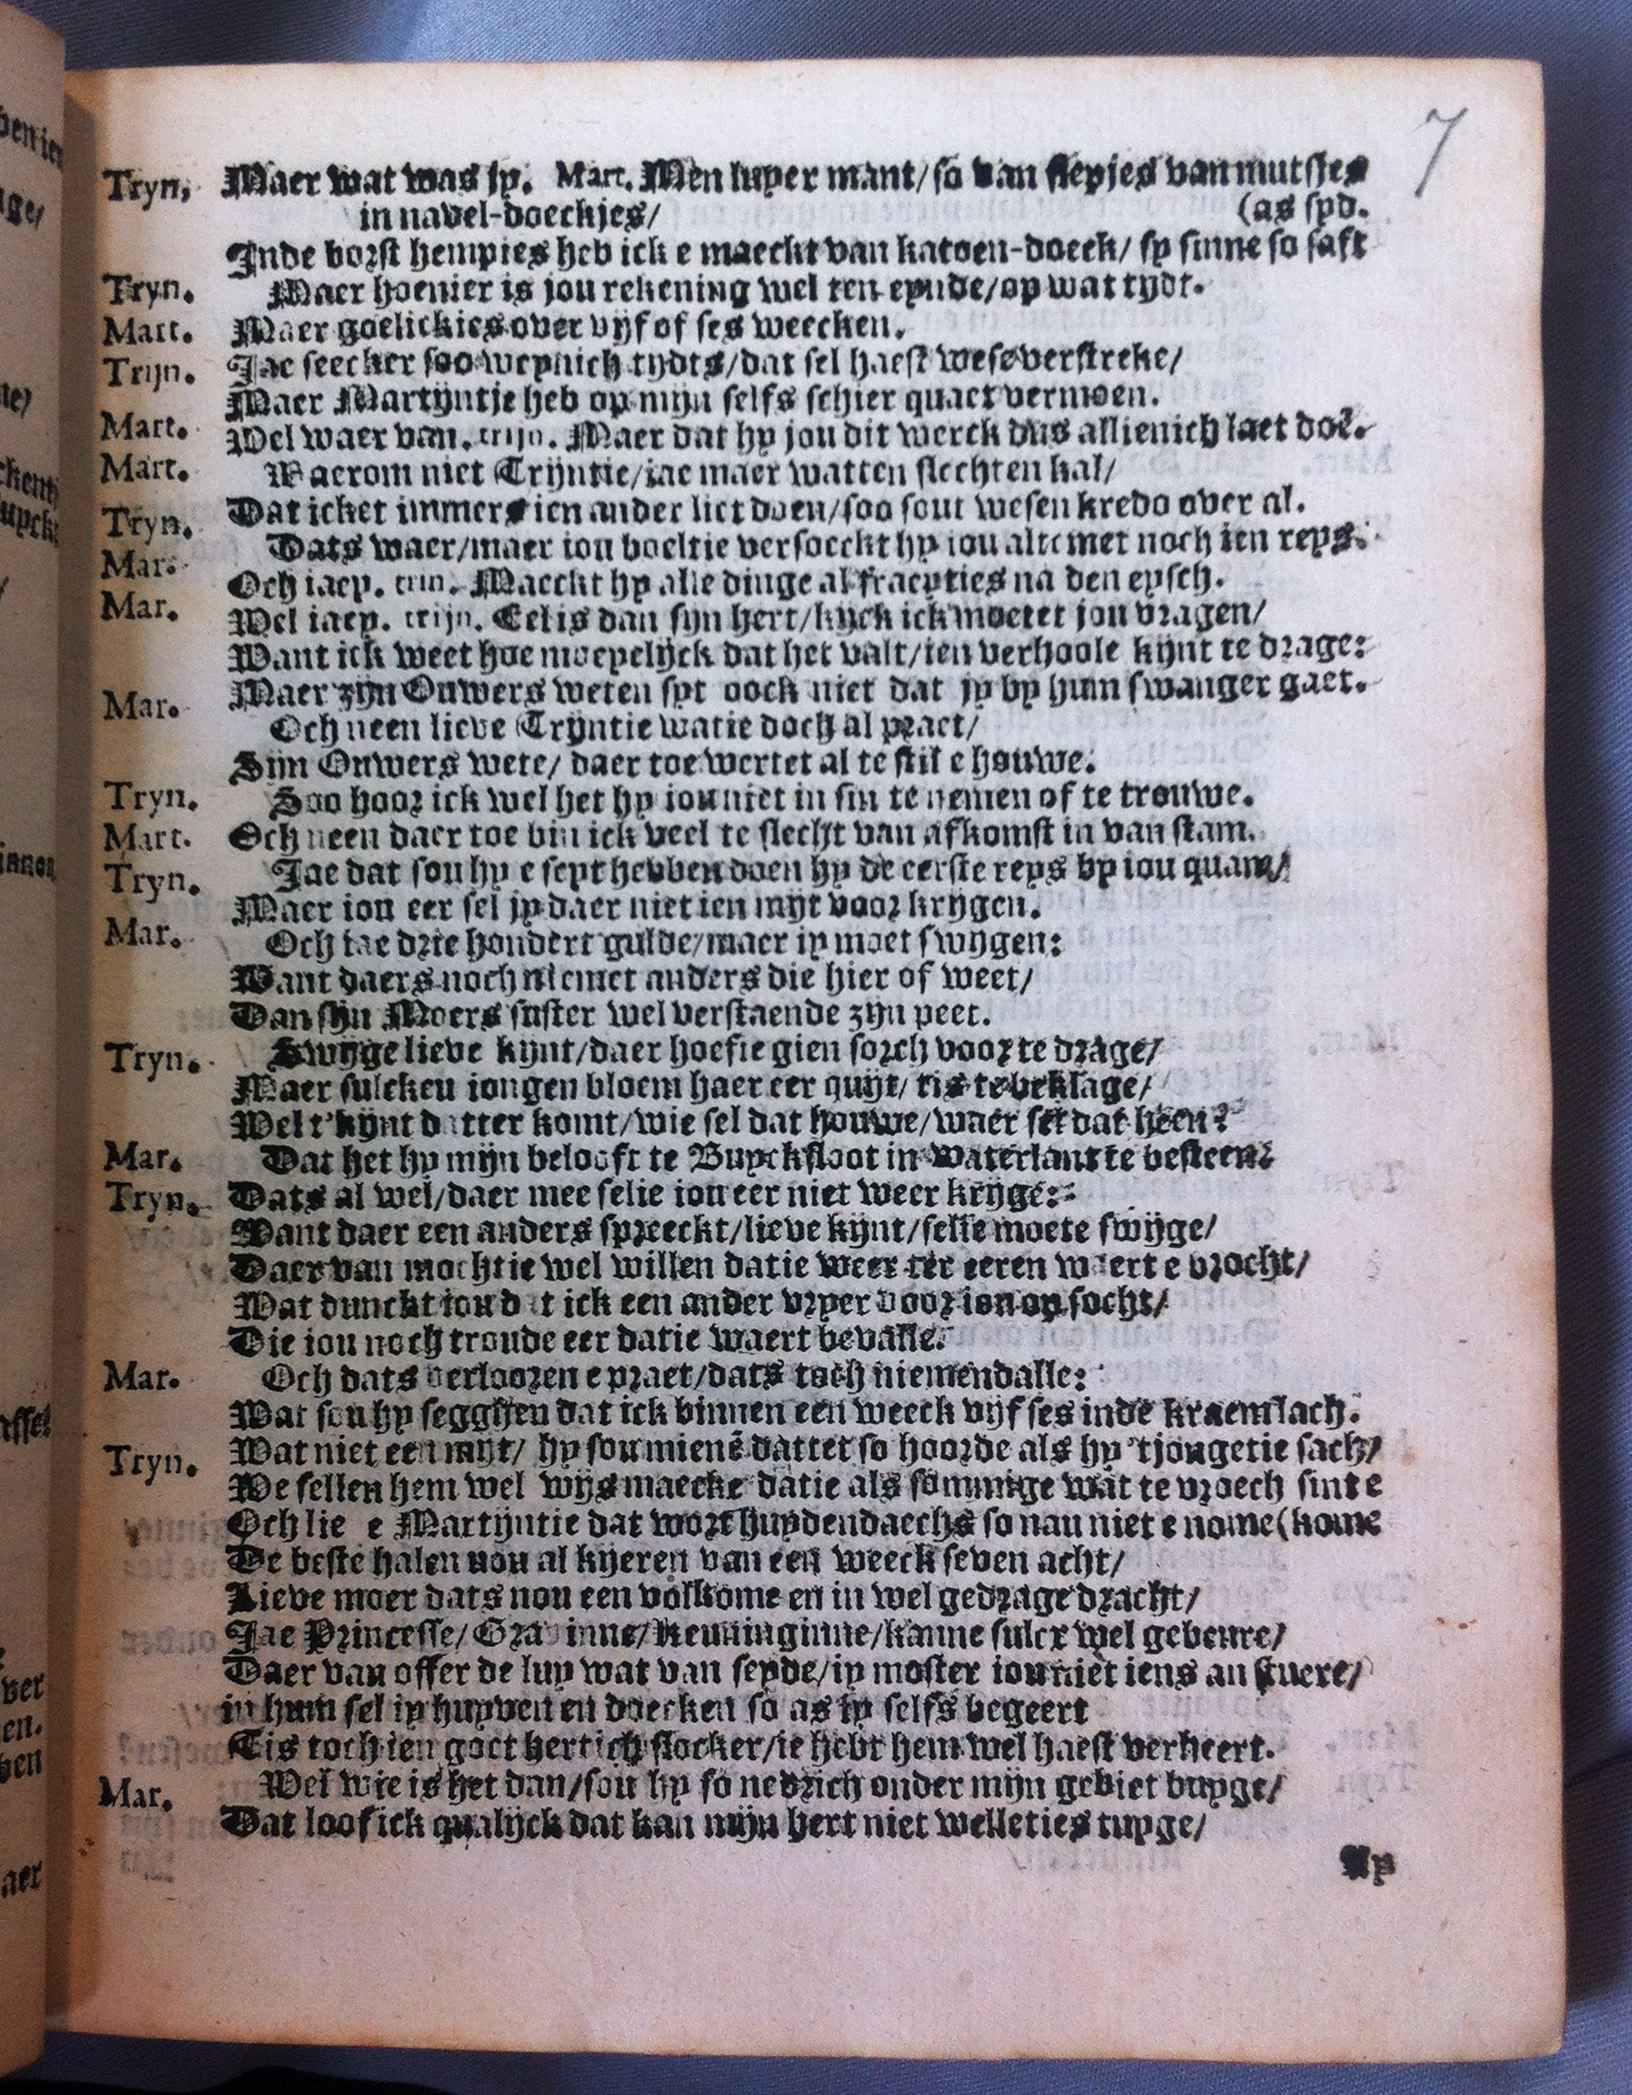 7
Tryn, Maer wat was jy. Mart. Men luyer mant/so van slepjes van mutsjes
in navel-doeckjes/ (as syd.
Inde borst hempies heb ick e maeckt van katoen-doeck/ sy sinne so saft
Tryn. Maer hoenier is jou rekening wel ten eynde/op wat tydt.
Mart. Maer goelickies over vijf of ses weecken.
Trijn. Jae seecker soo weynich tydts/dat sel haest wese verstreke/
Maer Martijntje heb op mijn selfs schier quaet vermoen.
Mart. Wel waer van. trijn. Maer dat hy jou dit werck dus allienich laet doē.
Mart. Waerom niet Trijntie/iae maer watten slechten kal/
Dat icket immers ien ander liet doen/soo sout wesen kredo over al.
Tryn. Dats waer/maer iou boeltie versoeckt hy iou altemet noch ien reys.
Mar. Och iaey. trin. Maeckt hy alle dinge al fraeyties na den eysch.
Mar. Wel iaey. trijn. Eelis dan sijn hert/kijck ick moetet jou vragen/
Want ick weet hoe moeyelijck dat het valt/ien verhoole kijnt te drage:
Maer zijn Ouwers weten syt oock niet dat jy by hum swanger gaet.
Mar. Och neen lieve Trijntie watie doch al praet/
Sijn Ouwers wete/ daer toe wertet al te stil e houwe.
Tryn. Soo hoor ick wel het hy iou niet in sin te nemen of te trouwe.
Mart. Och neen daer toe bin ick veel te slecht van afkomst in van stam.
Tryn. Jae dat sou hy e seyt hebben doen hy de eerste reys by iou quam/
Maer iou eer sel jy daer niet ien mijt voor krygen.
Mar. Och iae drie hondert gulde/maer iy moet swijgen:
Want daers noch niemet anders die hier of weet/
Dan sijn Moers suster wel verstaende zijn peet.
Tryn. Swijge lieve kijnt/daer hoefie gien sorch voor te drage/
Maer sulcken iongen bloem haer eer quijt/ tis te beklage/
Wel t'kijnt datter komt/wie sel dat houwe/waer sel dat heen?
Mar. Dat het hy mijn belooft te Buycksloot in Waterlant te besteen.
Tryn. Dats al wel/daer mee selie iou eer niet weer krijge:
Want daer een anders spreeckt/lieve kijnt/selie moete swijge/
Daer van mochtie wel willen datie weer ter eeren waert e brocht/
Wat dunckt iou dat ick een ander vryer voor iou op socht/
Die iou noch troude eer datie waert bevalle.
Mar. Och dats verlooren e praet/dats toch niemendalle:
Wat sou hy segghen dat ick binnen een weeck vijf ses inde kraem lach.
Tryn. Wat niet een mijt/ hy sou mienē dattet so hoorde als hy 'tjongetie sach/
We sellen hem wel wijs maecke datie als sommige wat te vroech sint e
Och lie e Martijntie dat wort huydendaechs so nau niet e nome (kome
De beste halen nou al kijeren van een weeck seven acht/
Lieve moer dats nou een volkome en in wel gedrage dracht/
Jae Princesse/ Gra inne/ Keuninginne/kanne sulcx wel gebeure/
Daer van offer de luy wat van seyde/iy moster iou niet iens an stuere/
in hum sel iy huyven en doecken so as iy selfs begeert
Tis toch ien goet hertich slocker/ie hebt hem wel haest verheert.
Mar. Wel wie is het dan/sou hy so nedrich onder mijn gebiet buyge/
Dat loof ick qualijck dat kan mijn hert niet welleties tuyge/
Ay